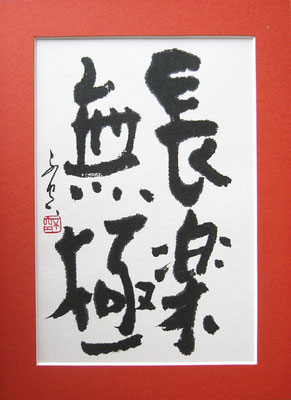 長楽
無極